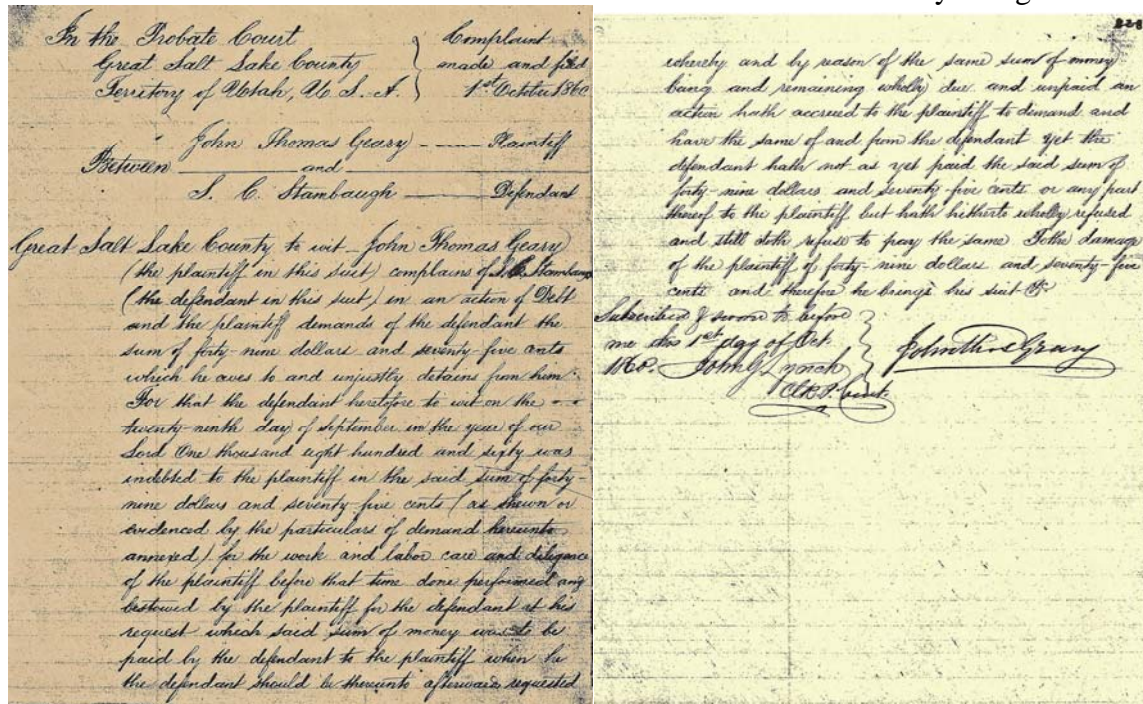 In the Probate Court
Great Salt Lake County
Territory of Utah, U. S. A.
Complaint
made and filed
1st October 1860
John Thomas Geary - Plaintiff
Between and
S. C. Stambaugh - Defendant
Great Salt Lake County to wit - John Thomas Geary
(the plaintiff in this suit) complains of S. C. Stambaugh
(the defendant in this suit) in an action of Debt
and the plaintiff demands of the defendant the
sum of forty-nine dollars and seventy-five cents
which he owes to and unjustly detains from him.
For that the defendant heretofore to wit on the
twenty-ninth day of September in the year of our
Lord One thousand eight hundred and sixty was
indebted to the plaintiff in the said sum of forty-
nine dollars and seventy-five cents (as shewn or
evidenced by the particulars of demand hereunto
annexed) for the work and labor care and diligence
of the plaintiff before that time done performed and
bestowed by the plaintiff for the defendant at his
request which said sum of money was to be
paid by the defendant to the plaintiff when he
the defendant should be thereunto afterwards requested
228
whereby and by reason of the same sum of money
being and remaining wholly due and unpaid an
action hath accrued to the plaintiff to demand and
have the same of and from the defendant yet the
defendant hath not as yet paid the said sum of
forty-nine dollars and seventy-five cents or any part
thereof to the plaintiff but hath hitherto wholly refused
and still doth refuse to pay the same. To the damage
of the plaintiff of forty-nine dollars and seventy-five
cents and therefore he brings his suit &c.
Subscribed & sworn to before
me this 1st day of Oct.
1860. John G. Lynch
Clk P. Court.
John Thos Geary